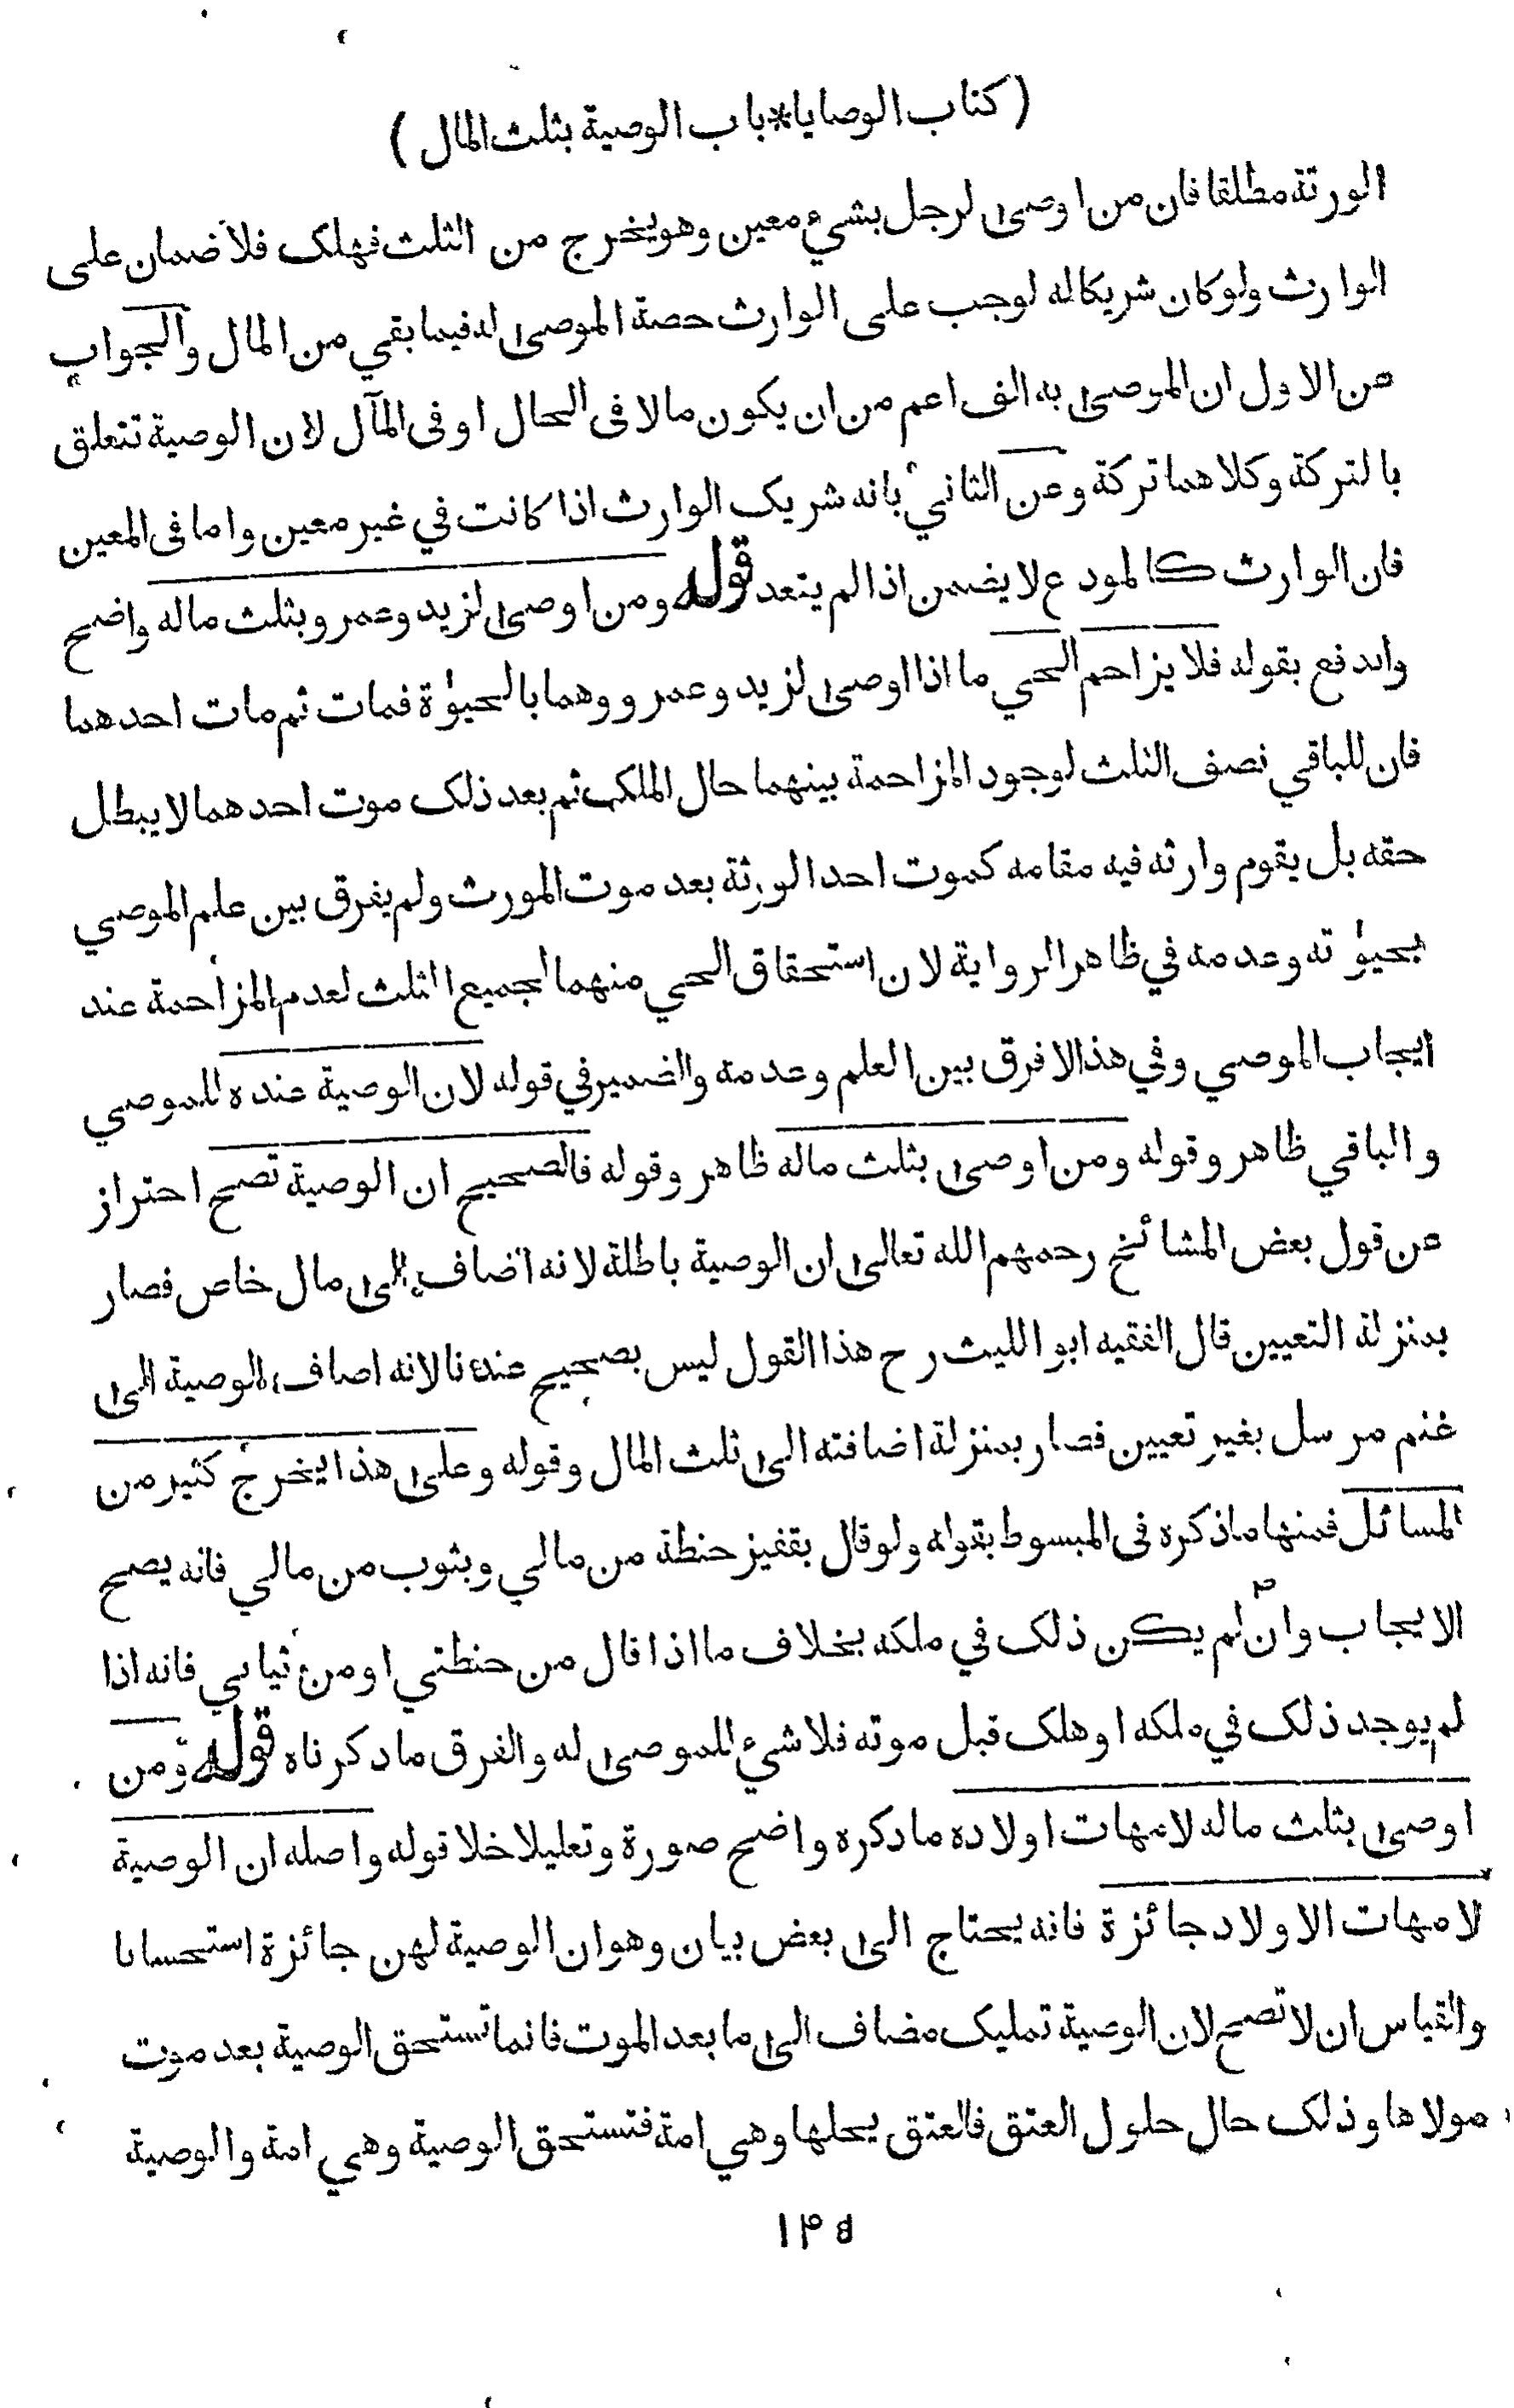 ( كتاب الوصايا * باب الوصية بثلث المال )
الورثة مطلقا فان من اوصى لرجل بشيء معين وهو يخرج من الثلث فهلك فلا ضمان على
الوارث ولو كان شريكا له لوجب على الوارث حصة الموصى له فيما بقي من المال والجواب
عن الاول ان الموصى به الف اعم من ان يكون مالا فى الحال او فى المآل لان الوصية تتعلق
بالتركة وكلاهما تركة وعن الثاني بانه شريك الوارث اذا كانت في غير معين واما فى المعين
فان الوارث كالمودع لا يضمن اذا لم يتعد قوله ومن اوصى لزيد وعمرو بثلث ماله واضح
واندفع بقوله فلا يزاحم الحي ما اذا اوصى لزيد وعمرو وهما بالحيوٰة فمات ثم مات احدهما
فان للباقي نصف الثلث لوجود المزاحمة بينهما حال الملك ثم بعد ذلك موت احدهما لا يبطل
حقه بل يقوم وارثه فيه مقامه كموت احد الورثة بعد موت المورث ولم يفرق بين علم الموصي
بحيوٰته وعدمه في ظاهر الرواية لان استحقاق الحي منهما لجميع الثلث لعدم المزاحمة عند
ايجاب الموصي وفي هذا لا فرق بين العلم وعدمه والضمير في قوله لان الوصية عنده للموصي
والباقي ظاهر وقوله ومن اوصى بثلث ماله ظاهر وقوله فالصحيح ان الوصية تصح احتراز
عن قول بعض المشائخ رحمهم الله تعالى ان الوصية باطلة لانه اضاف الى مال خاص فصار
بمنزلة التعيين قال الفقيه ابو الليث رح هذا القول ليس بصحيح عندنا لانه اضاف الوصية الى
غنم مرسل بغير تعيين فصار بمنزلة اضافته الى ثلث المال وقوله وعلى هذا يخرج كثير من
المسائل فمنها ما ذكره فى المبسوط بقوله ولو قال بقفيز حنطة من مالي وبثوب من مالي فانه يصح
الايجاب وان لم يكن ذلك في ملكه بخلاف ما اذا قال من حنطتي او من ثيابي فانه اذا
لم يوجد ذلك في ملكه او هلك قبل موته فلا شيء للموصى له والفرق ما ذكرناه قوله ومن
اوصى بثلث ماله لامهات اولاده ما ذكره واضح صورة وتعليلا خلا قوله واصله ان الوصية
لامهات الاولاد جائزة فانه يحتاج الى بعض بيان وهو ان الوصية لهن جائزة استحسانا
والقياس ان لا تصح لان الوصية تمليك مضاف الى ما بعد الموت فانما تستحق الوصية بعد موت
مولاها وذلك حال حلول العتق فالعتق يحلها وهي امة فتستحق الوصية وهي امة والوصية
۱۴۵